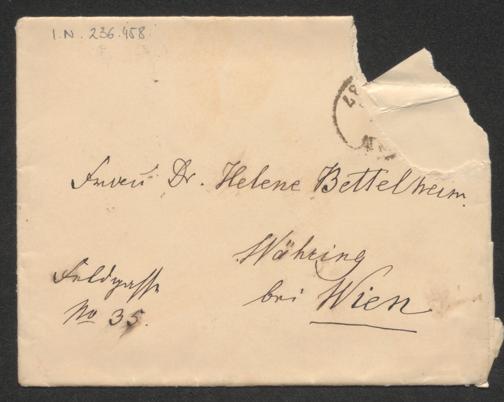 I.N. 236.458
Frau Dr. Helene Bettelheim.
Währing
bei Wien
Feldgasse
No 35.